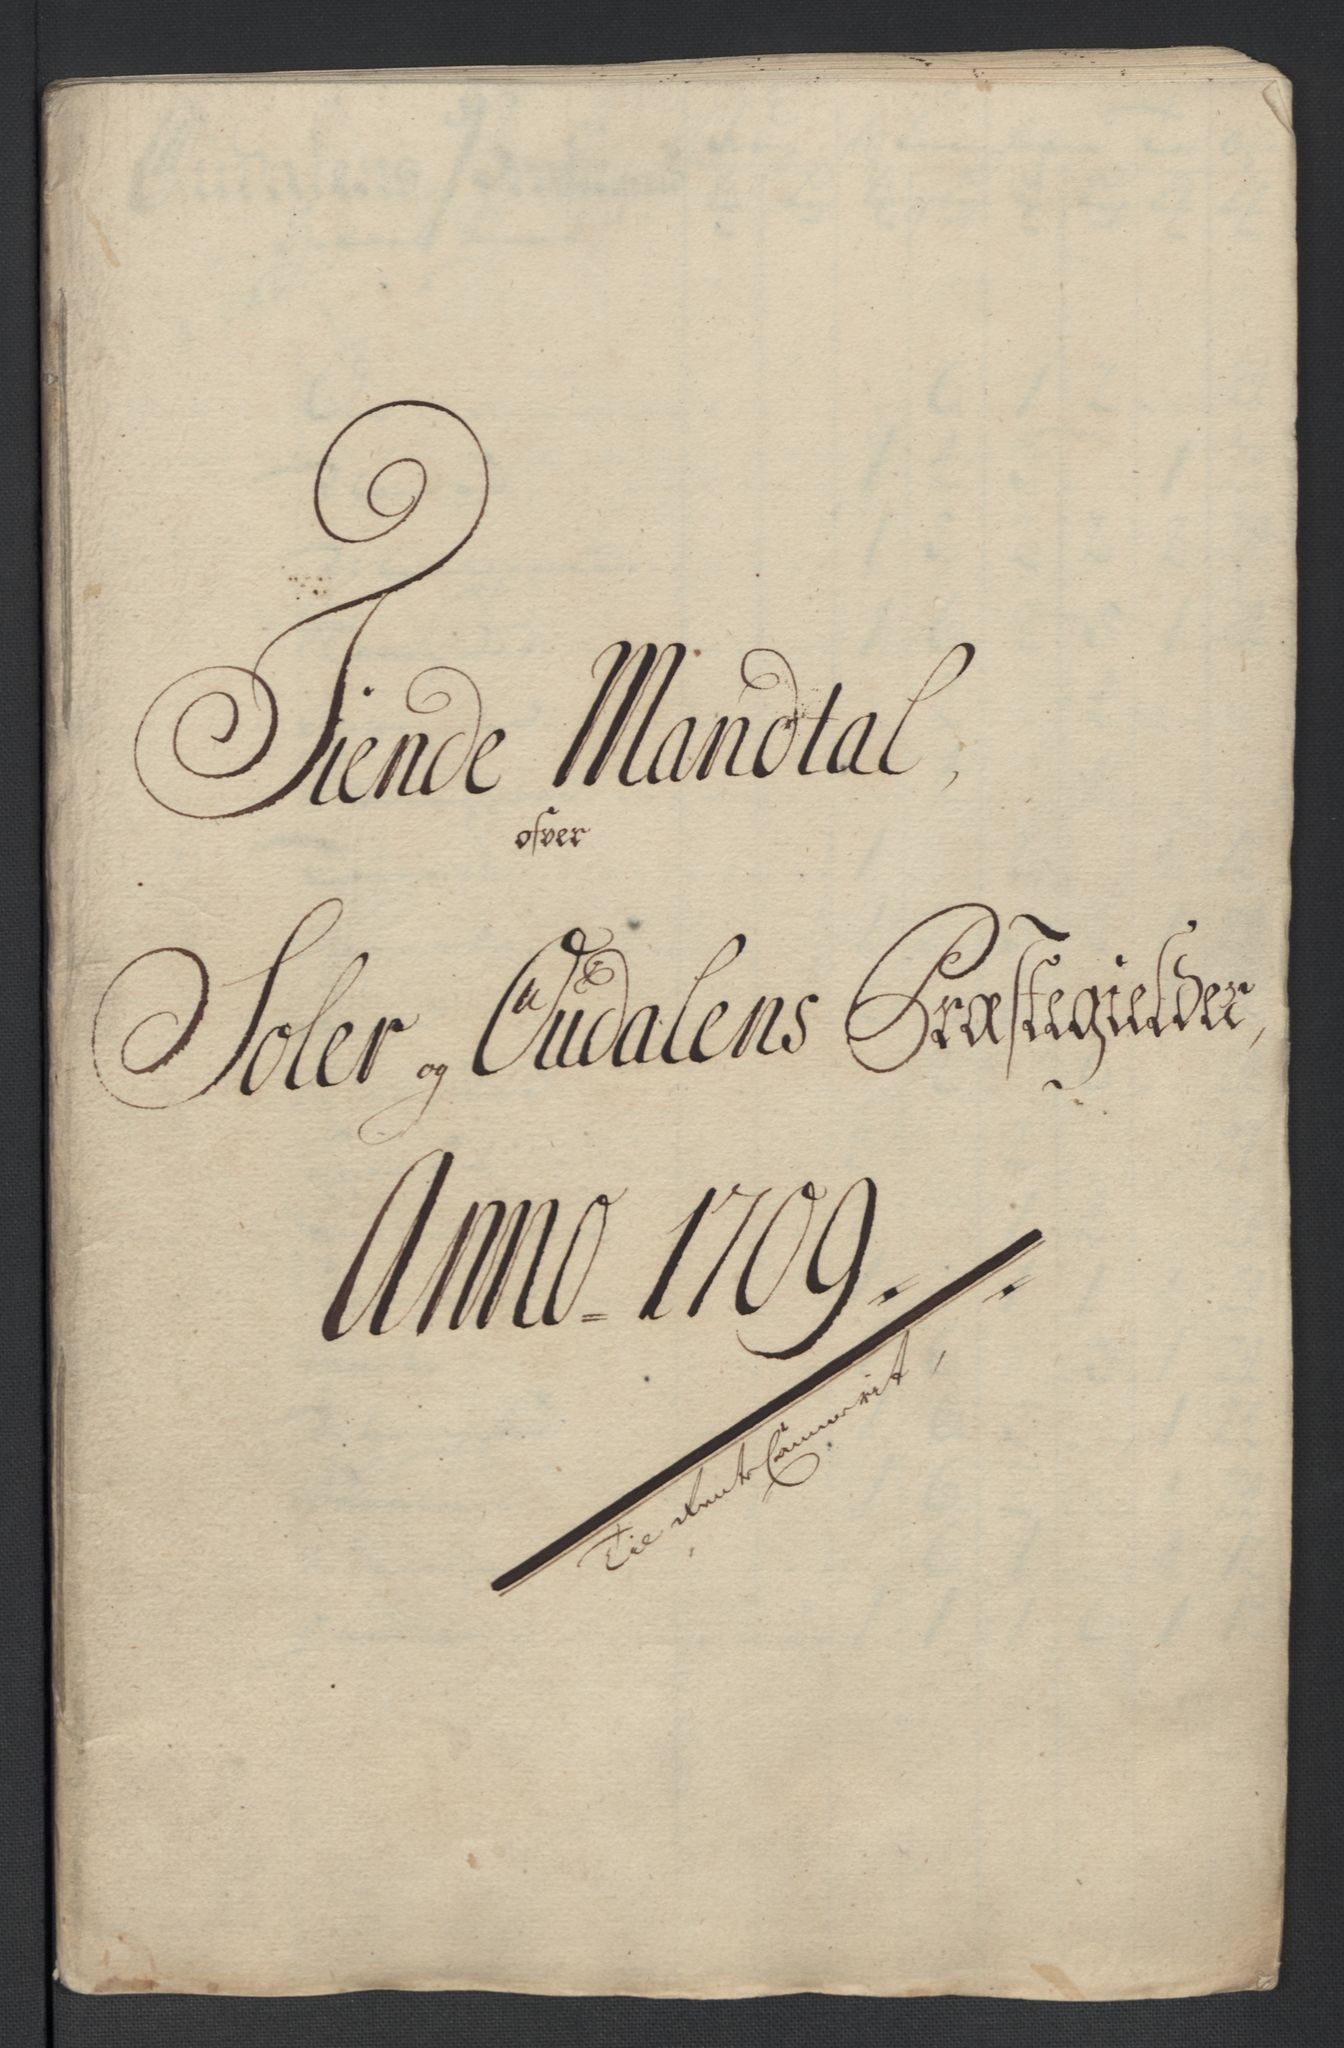 Tiende Mandtal,
ofver
Soler og Oudalens Præstegielder,
Anno 1709.
Til Rente Cammerit,